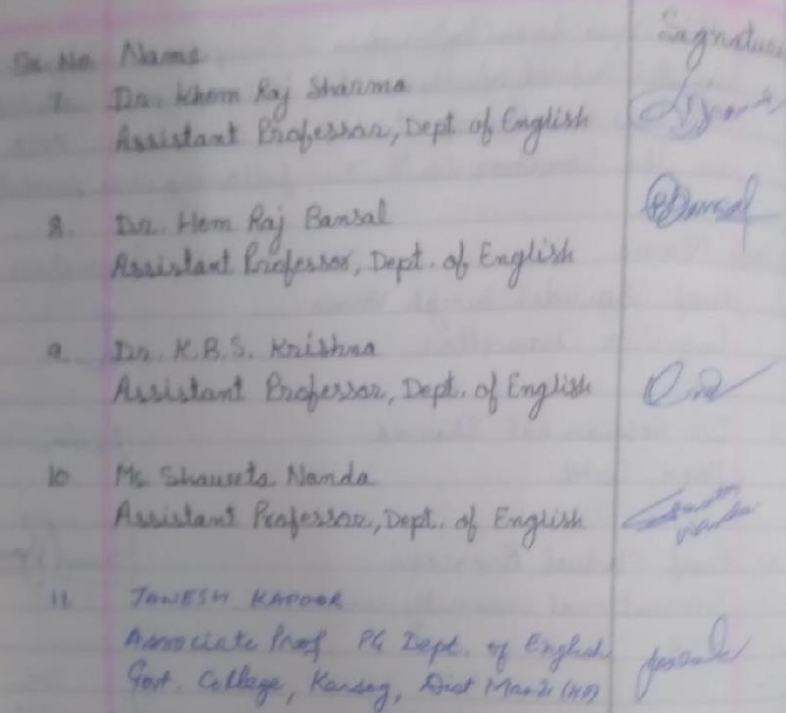 Sr. No. Name Signature
7. Dr. Khem Raj Sharma
Assistant Professor, Dept. of English
8. Dr. Hem Raj Bansal
Assistant Professor, Dept. of English
9. Dr. K.B.S. Krishna
Assistant Professor, Dept. of English
10 Ms. Shaweta Nanda
Assistant Professor, Dept. of English
11 JANESH KAPOOR
Associate Prof PG Dept. of English
Govt. College, Karsog, Dist Mandi (HP)